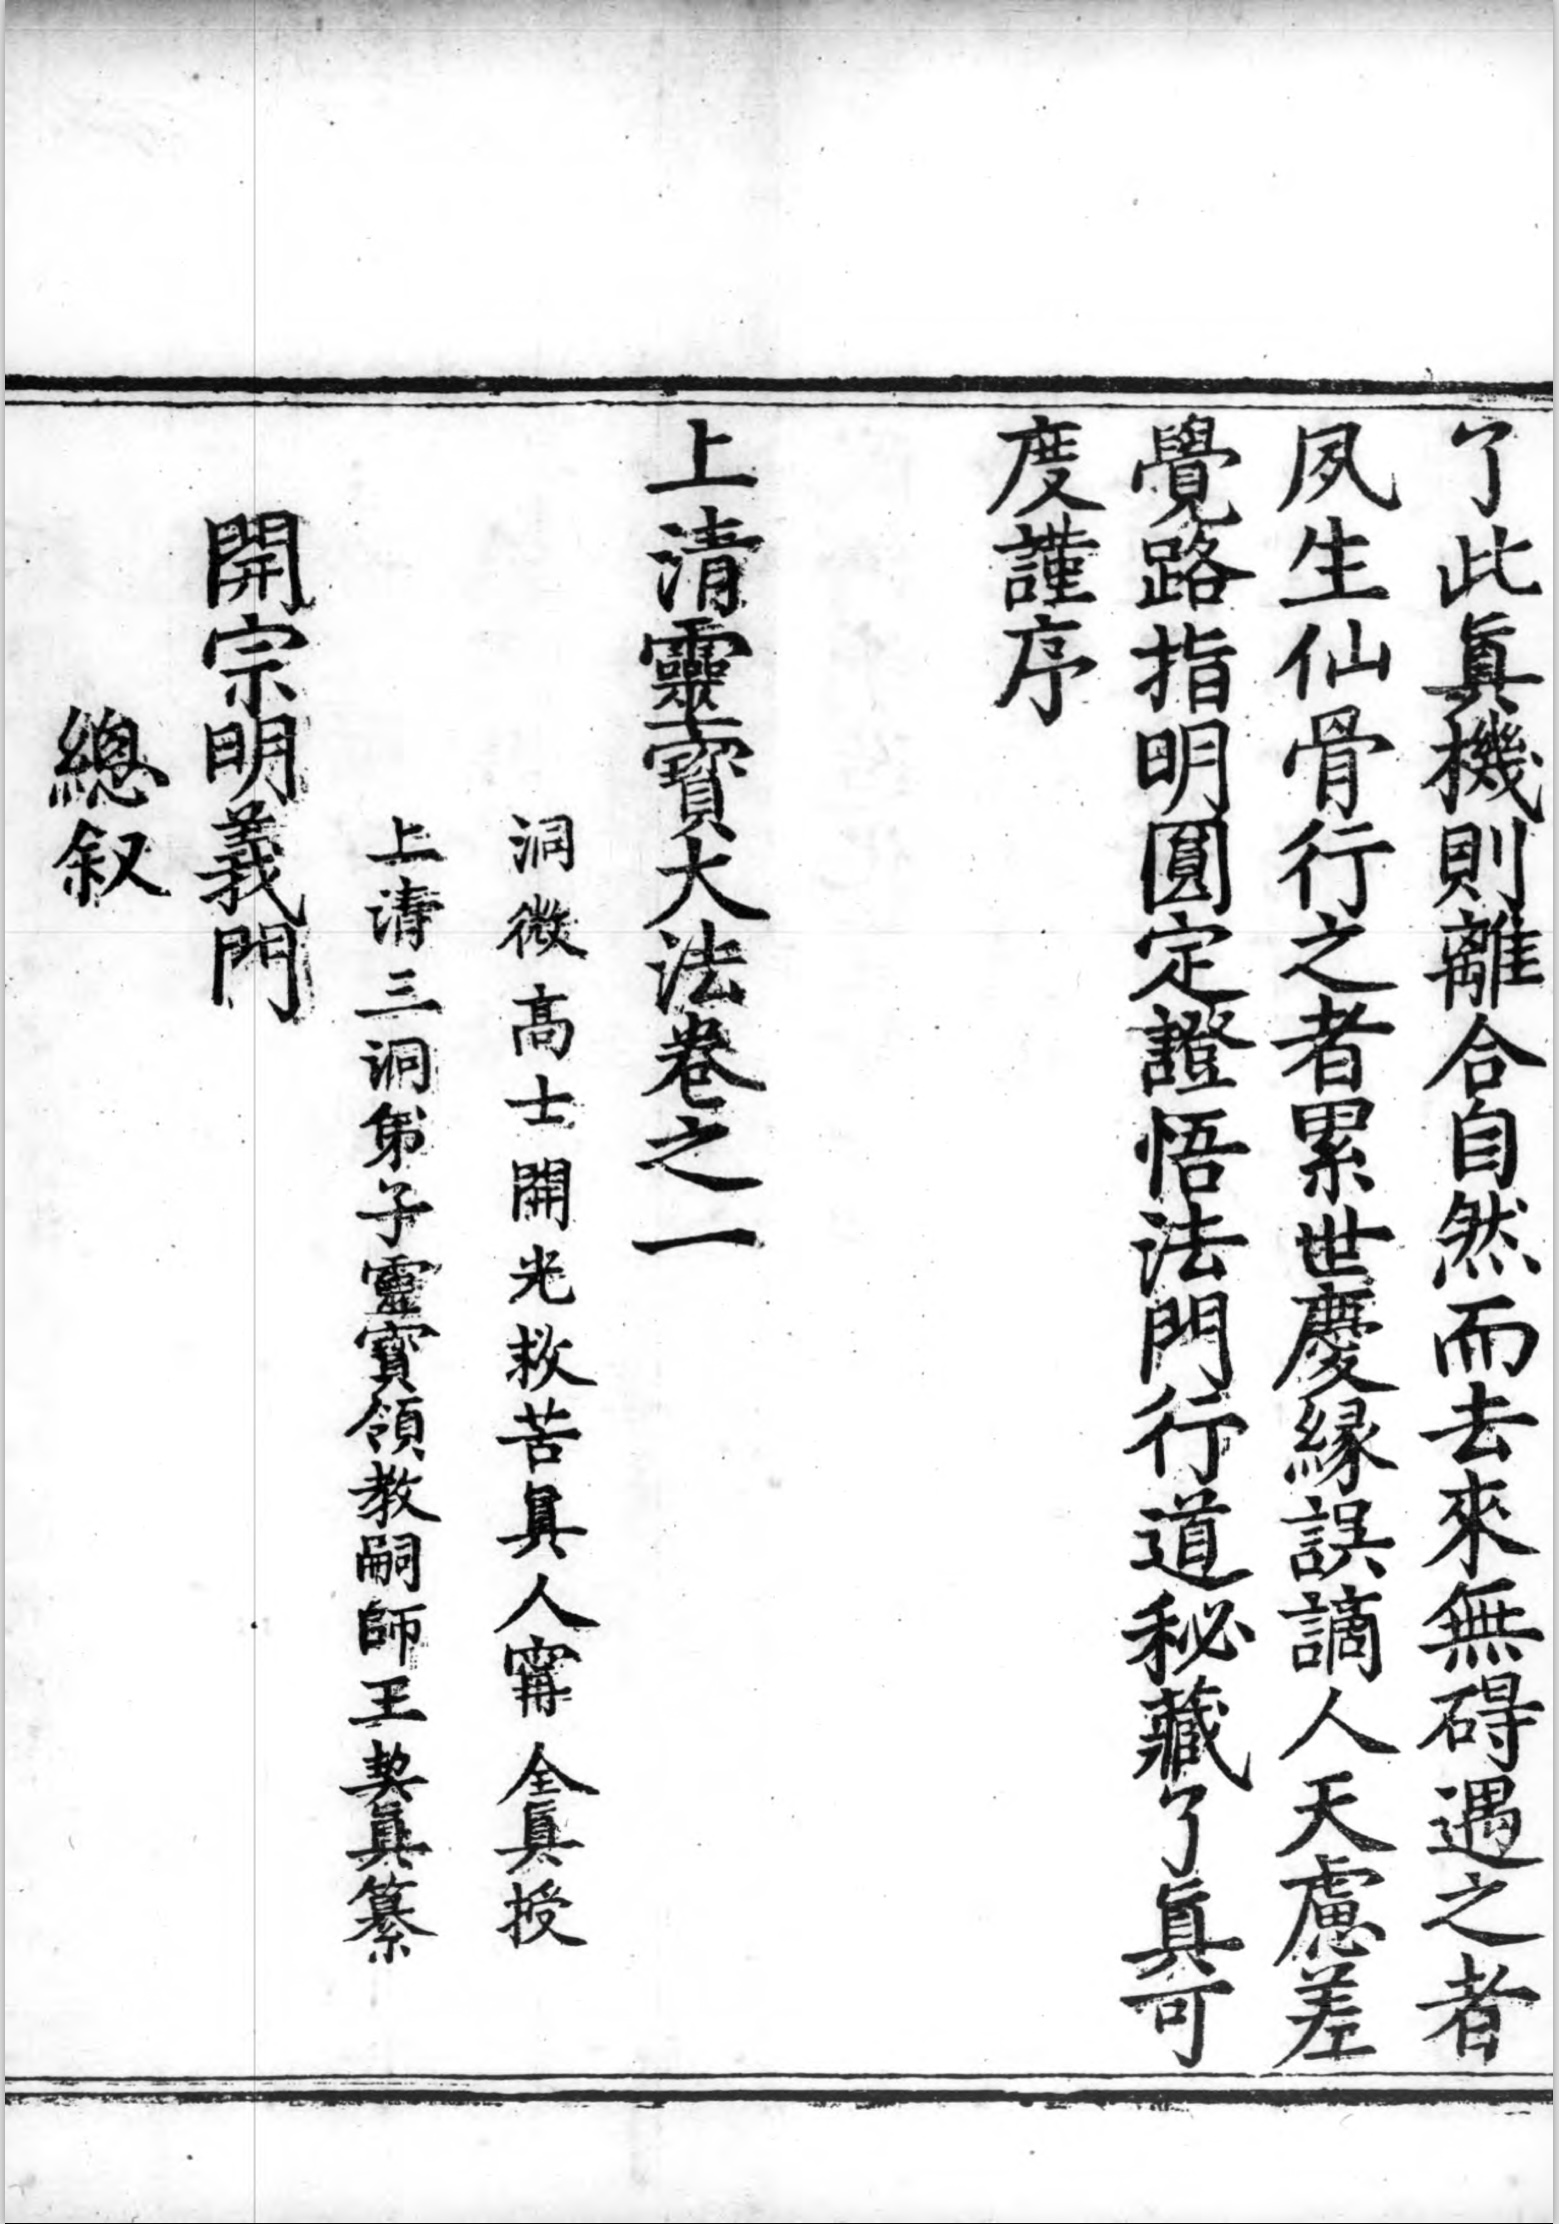 了此眞機則離合自然而去來無碍遇之者
夙生仙骨行之者累世慶緣誤謫人天慮差
覺路指明圓定證悟法門行道秘藏了眞可
度謹序
上清靈寶大法卷之一
洞微高士開光救苦眞人寗全眞授
上清三洞弟子靈寶領教嗣師王契眞纂
開宗明義門
總叙